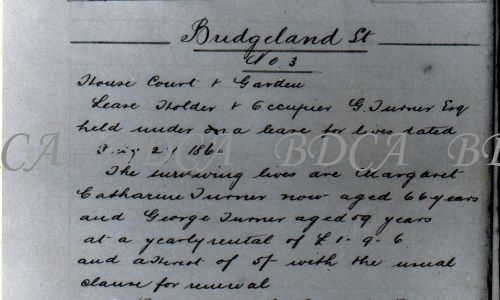 Bridgeland St
No 3
House Court & Garden
Lease Holder & Occupier G. Turner Esq
held under a lease for lives dated
21 186
CA BDCA BDCA BD
The surviving lives are Margaret
Catharine Turner now aged 66 years
and George Turner aged 59 years
at a yearly rental of £1-9-6
and a heriot of 5/- with the usual
clause for renewal